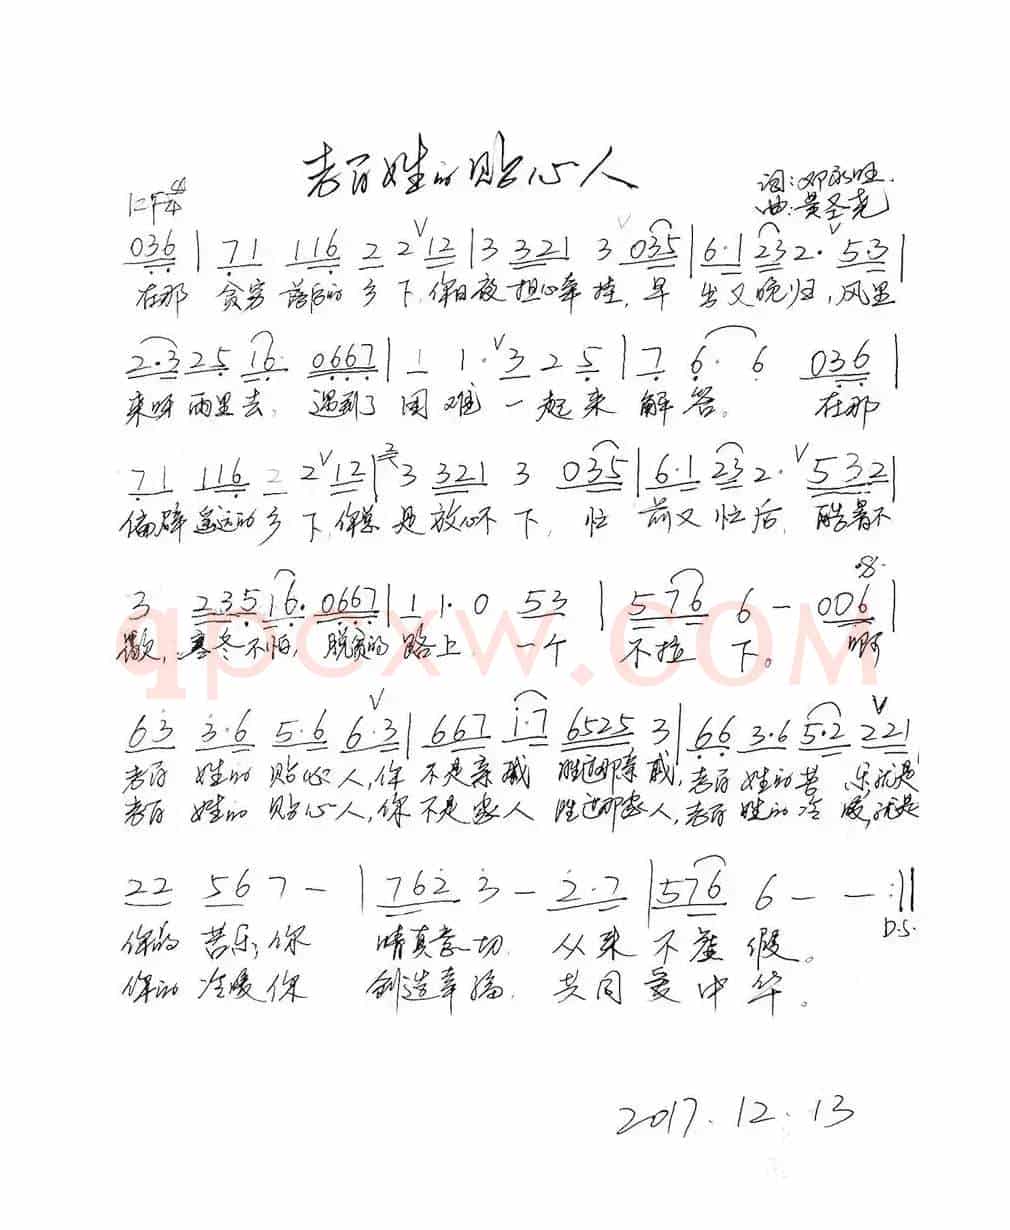 老百姓的贴心人
词:邓永旺
1=F 4/4
曲:黄圣尧
036 | 71 116 2 2 V 12 | 3 321 3 V 035 | 6·1 23 2· V 5·3 |
在那 贫穷 落后的 乡下,你日夜担心牵挂,早出又晚归,风里
2·3 25 16· 0667 | 1 1· V 3 2 5 | 7 6· 6 036 |
来呀雨里去,遇到了困难一起来解答。在那
71 116 2 2 V 12 | 3 321 3 035 | 6·1 23 2· V 532 |
偏僻遥远的乡下,你总是放心不下,忙前又忙后,酷暑不
3 23516· 0667 | 1 1· 0 53 | 576 6 - 006 |
歇,寒冬不怕,脱贫的路上,一个不拉下。啊
63 3·6 5·6 6·3 V | 667 1·7 6525 3 | 66 3·6 5·2 V 221
老百姓的贴心人,你不是亲戚胜过那亲戚,老百姓的苦乐就是
老百姓的贴心人,你不是家人胜过那家人,老百姓的冷暖,就是
22 56 7 - | 762 3 - 2·7 | 576 6 - - :||
D.S.
你的苦乐;你情真意切,从来不虚假。
你的冷暖你创造幸福,共同爱中华。
2017.12.13
qpoxw.COM